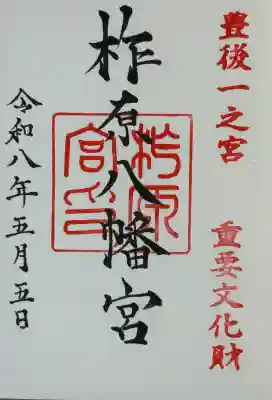 豊後一之宮
重要文化財
柞原八幡宮
柞原
宮印
令和八年五月五日